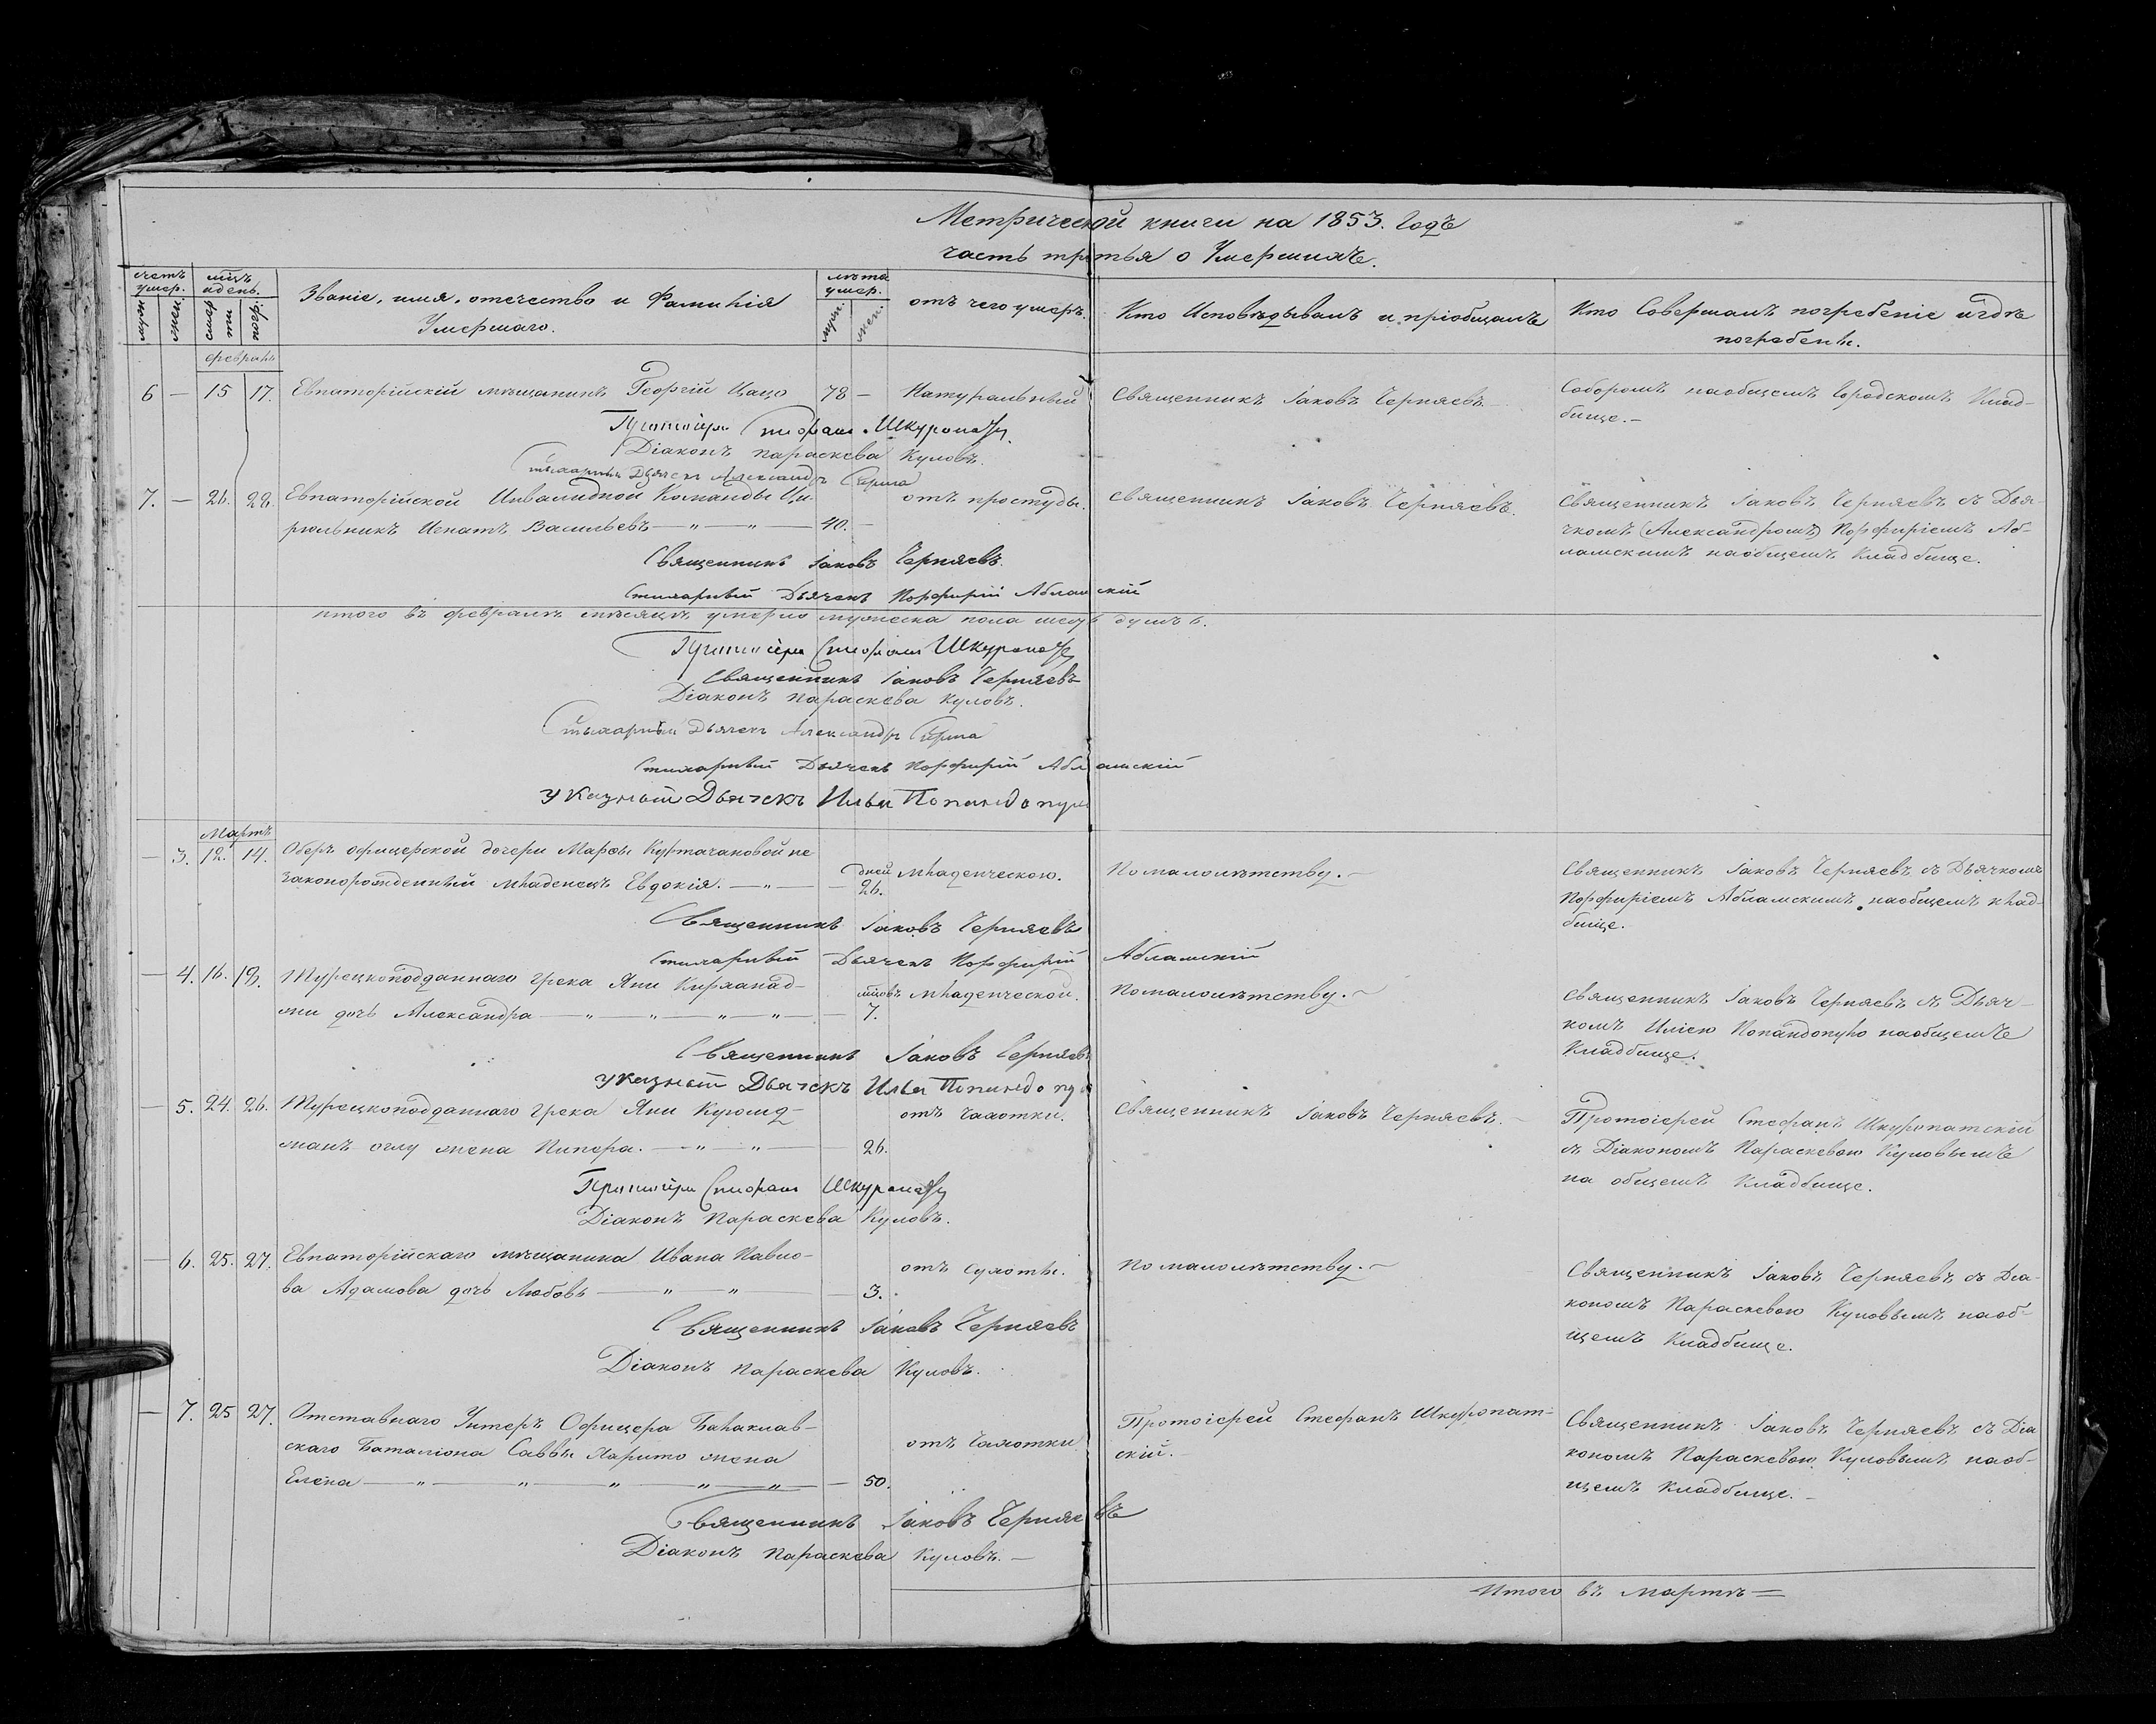 Метрической книги на 1853. Годъ
часть третья о Умершихъ.
счетъ умер. мцъ и день. Званіе, имя, отечество и Фамилія Умершаго. лѣта умер. отъ чего умеръ. Кто Исповѣдывалъ и пріобщалъ Кто Совершалъ погребеніе и гдѣ погребены.
муж. жен. смерти погр. муж. жен.
февраль
6 — 15 17. Евпаторійскій мѣщанинъ Георгій Цацо 78 — Натуральный Священникъ Іаковъ Черняевъ. Соборомъ на общемъ Городскомъ Клад-
бище.—
Протоіерей Стефанъ Шкуропат
Діаконъ Параскева Куловъ.
Стихарный Дьячекъ Александръ
7. — 26. 28. Евпаторійской Инвалидной Команды Ци- отъ простуды. Священникъ Іаковъ Черняевъ. Священникъ Іаковъ Черняевъ съ Дья-
рюльникъ Игнатъ Васильевъ — „ — „ — 40. — чкомъ (Александромъ) Порфиріемъ Аб-
ламскимъ на общемъ Кладбище.
Священникъ Іаковъ Черняевъ.
Стихарный Дьячекъ Порфирій Абламскій
итого въ февралѣ мѣсяцѣ умерло мужеска пола душъ
Протоіерей Стефанъ Шкуропат
Священникъ Іаковъ Черняевъ
Діаконъ Параскева Куловъ.
Стихарный Дьячекъ Александръ
Стихарный Дьячекъ Порфирій Абламскій
Указный Дьячекъ Илья Попандопул
Мартъ
— 3. 12. 14. Оберъ офицерской дочери Марѳы Куртачановой не-
законорожденный младенецъ Евдокія. — „ — дней 26. младенческою. По малолѣтству.— Священникъ Іаковъ Черняевъ съ Дьячкомъ
Порфиріемъ Абламскимъ на общемъ клад-
бище.
Священникъ Іаковъ Черняевъ
Стихарный Дьячекъ Порфирій Абламскій
— 4. 16. 18. Турецкоподданнаго Грека Яни Кирланад- мцовъ младенческой. По малолѣтству.— Священникъ Іаковъ Черняевъ съ Дьяч-
жи дочь Александра — „ — „ — „ — „ — 7. комъ Иліею Попандопуло на общемъ
Кладбище.
Священникъ Іаковъ Черняевъ
Указный Дьячекъ Илья Попандопул
— 5. 24. 26. Турецкоподданнаго Грека Яни Куюмд- отъ Чахотки. Священникъ Іаковъ Черняевъ.— Протоіерей Стефанъ Шкуропатскій
жанъ оглу жена Пипера. — „ — „ — 26. съ Діакономъ Параскевою Куловымъ
на общемъ Кладбище.
Протоіерей Стефанъ Шкуропат
Діаконъ Параскева Куловъ.
— 6. 25. 27. Евпаторійскаго мѣщанина Ивана Павло- отъ Сухоты. По малолѣтству.— Священникъ Іаковъ Черняевъ съ Діа-
ва Адамова дочь Любовь — „ — „ — 3. кономъ Параскевою Куловымъ на об-
щемъ Кладбище.
Священникъ Іаковъ Черняевъ
Діаконъ Параскева Куловъ.
— 7. 25 27. Отставнаго Унтеръ Офицера Балаклав- отъ Чахотки Протоіерей Стефанъ Шкуропат- Священникъ Іаковъ Черняевъ съ Діа
скаго Баталіона Саввы Харито жена скій.— кономъ Параскевою Куловымъ на об-
Елена — „ — „ — „ — „ — „ — 50. щемъ Кладбище.—
Священникъ Іаковъ Черняевъ
Діаконъ Параскева Куловъ.—
Итого въ мартѣ =